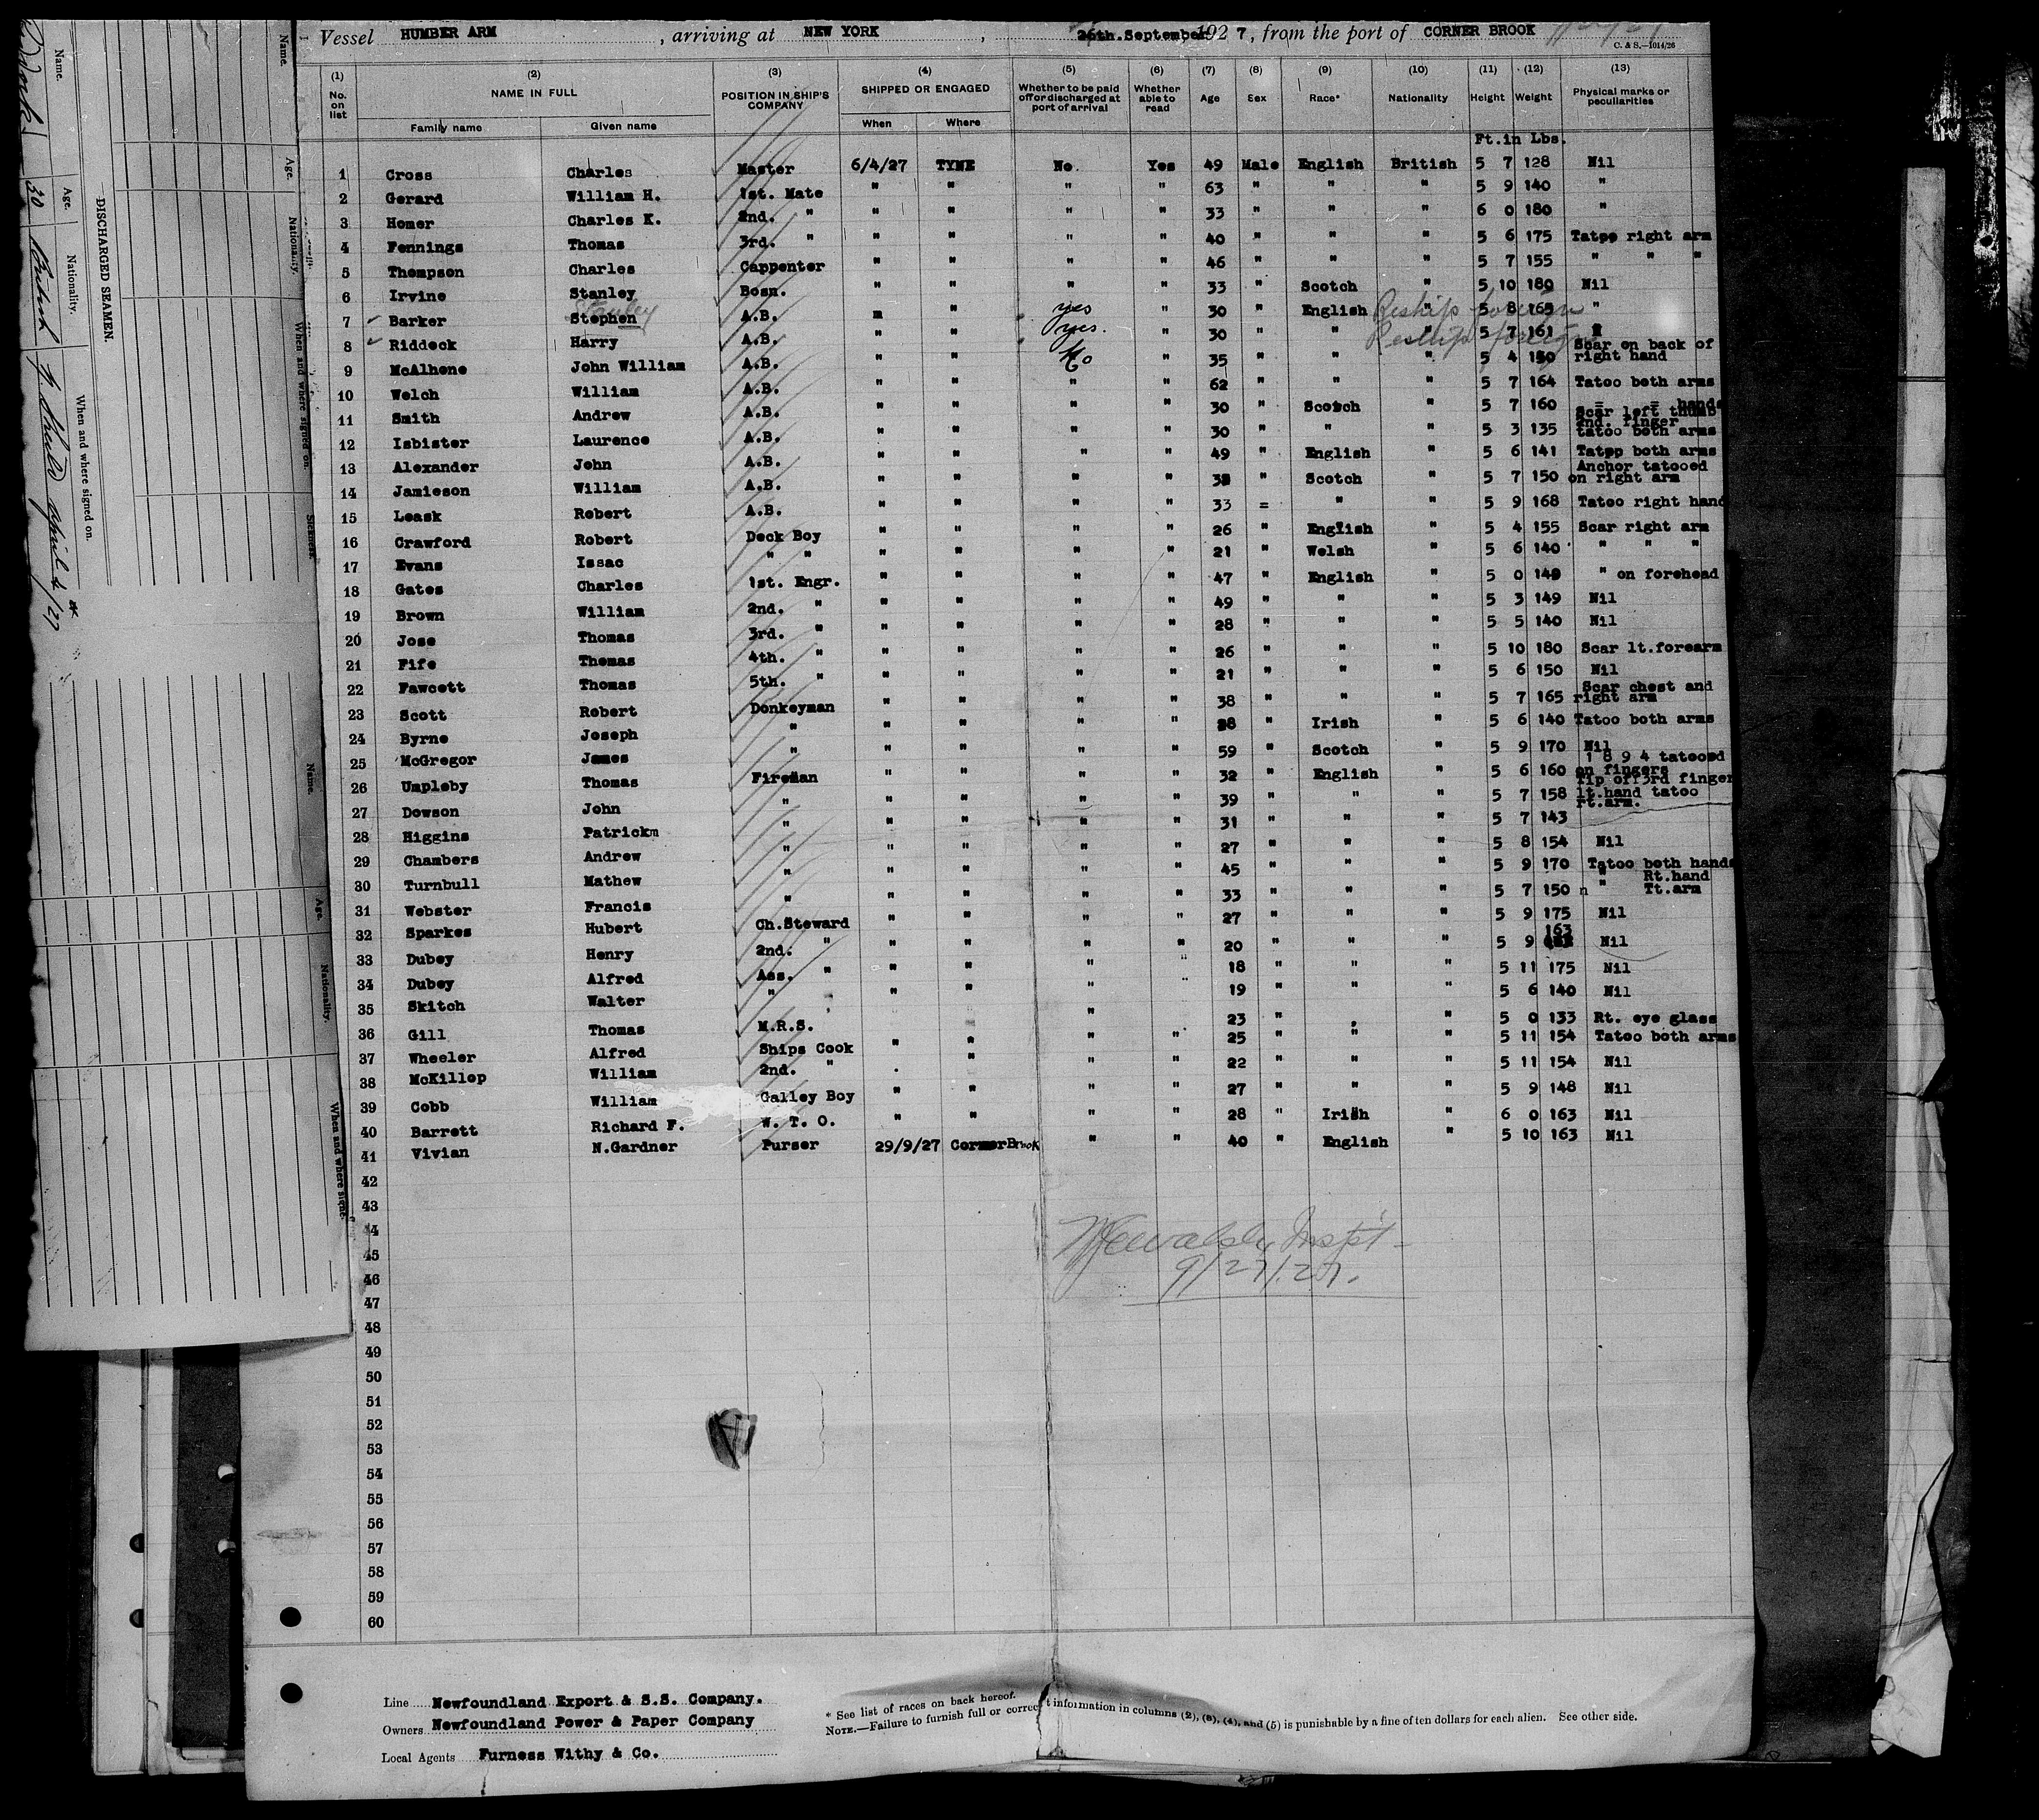 Vessel HUMBER ARM, arriving at NEW YORK, 26th.September 1927, from the port of CORNER BROOK
C. & S.—1014/26
(1) (2) (3) (4) (5) (6) (7) (8) (9) (10) (11) (12) (13)
No. on list NAME IN FULL POSITION IN SHIP'S COMPANY SHIPPED OR ENGAGED Whether to be paid off or discharged at port of arrival Whether able to read Age Sex Race* Nationality Height Weight Physical marks or peculiarities
Family name Given name When Where
Ft.in Lbs.
1 Cross Charles Master 6/4/27 TYNE No. Yes 49 Male English British 5 7 128 Nil
2 Gerard William H. 1st. Mate " " " " 63 " " " 5 9 140 "
3 Homer Charles K. 2nd. " " " " " 33 " " " 6 0 180 "
4 Fennings Thomas 3rd. " " " " " 40 " " " 5 6 175 Tatoo right arm
5 Thompson Charles Cappenter " " " " 46 " " " 5 7 155 " " "
6 Irvine Stanley Bosn. " " " " 33 " Scotch " 5 10 180 Nil
7 Barker Stephen Stanley A.B. " " yes " 30 " English " 5 8 165 " Reship foreign
8 Riddeck Harry A.B. " " yes. " 30 " " " 5 7 161 Reship foreign
9 McAlhone John William A.B. " " No " 35 " " " 5 4 150 Scar on back of right hand
10 Welch William A.B. " " " " 62 " " " 5 7 164 Tatoo both arms
11 Smith Andrew A.B. " " " " 30 " Scotch " 5 7 160 = = hands
12 Isbister Laurence A.B. " " " " 30 " " " 5 3 135 Scar left thumb 2nd. finger tatoo both arms
13 Alexander John A.B. " " " " 49 " English " 5 6 141 Tatoo both arms
14 Jamieson William A.B. " " " " " Scotch " 5 7 150 Anchor tatooed on right arm
15 Leask Robert A.B. " " " " 33 = " " 5 9 168 Tatoo right hand
16 Crawford Robert Deck Boy " " " " 26 " English " 5 4 155 Scar right arm
17 Evans Issac " " " " " " 21 " Welsh " 5 6 140 " " "
18 Gates Charles 1st. Engr. " " " " 47 " English " 5 0 149 " on forehead
19 Brown William 2nd. " " " " " 49 " " " 5 3 149 Nil
20 Jose Thomas 3rd. " " " " " 28 " " " 5 5 140 Nil
21 Fife Thomas 4th. " " " " " 26 " " " 5 10 180 Scar lt.forearm
22 Fawcett Thomas 5th. " " " " " 21 " " " 5 6 150 Nil
23 Scott Robert Donkeyman " " " " 38 " " " 5 7 165 Scar chest and right arm
24 Byrne Joseph " " " " " 28 " Irish " 5 6 140 Tatoo both arms
25 McGregor James " " " " " 59 " Scotch " 5 9 170 Nil
26 Umpleby Thomas Fireman " " " " 32 " English " 5 6 160 1 8 9 4 tatooed on fingers
27 Dowson John " " " " " 39 " " " 5 7 158 Tip off3rd finger lt.hand tatoo rt.arm.
28 Higgins Patrickm " " " " " 31 " " " 5 7 143
29 Chambers Andrew " " " " " 27 " " " 5 8 154 Nil
30 Turnbull Mathew " " " " " 45 " " " 5 9 170 Tatoo both hands
31 Webster Francis " " " " " 33 " " " 5 7 150 n " Rt.hand Tt.arm
32 Sparkes Hubert Ch.Steward " " " " 27 " " " 5 9 175 Nil
33 Dubey Henry 2nd. " " " " " 20 " " " 5 9 163 Nil
34 Dubey Alfred Ass. " " " " " 18 " " " 5 11 175 Nil
35 Skitch Walter " " " " 19 " " " 5 6 140 Nil
36 Gill Thomas M.R.S. " 23 " " 5 0 133 Rt. eye glass
37 Wheeler Alfred Ships Cook " " " " 25 " " " 5 11 154 Tatoo both arms
38 McKillop William 2nd. " " " " 22 " " " 5 11 154 Nil
39 Cobb William Galley Boy " " " " 27 " " " 5 9 148 Nil
40 Barrett Richard F. W. T. O. " " " " 28 " Irish " 6 0 163 Nil
41 Vivian N.Gardner Purser 29/9/27 CornerBrook " " 40 " English " 5 10 163 Nil
42
43
44
45
46
47
48
49
50
51
52
53
54
55
56
57
58
59
60
Insp't
9/27/27.
Line Newfoundland Export & S.S. Company.
Owners Newfoundland Power & Paper Company
Local Agents Furness Withy & Co.
* See list of races on back hereof.
NOTE.—Failure to furnish full or correct information in columns (2), (3), (4), and (5) is punishable by a fine of ten dollars for each alien. See other side.
DISCHARGED SEAMEN.
Name. Age. Nationality. When and where signed on.
30 British April 6/27
Name. Age. Nationality. When and where signed on. Sickness.
Name. Age. Nationality. When and where signe